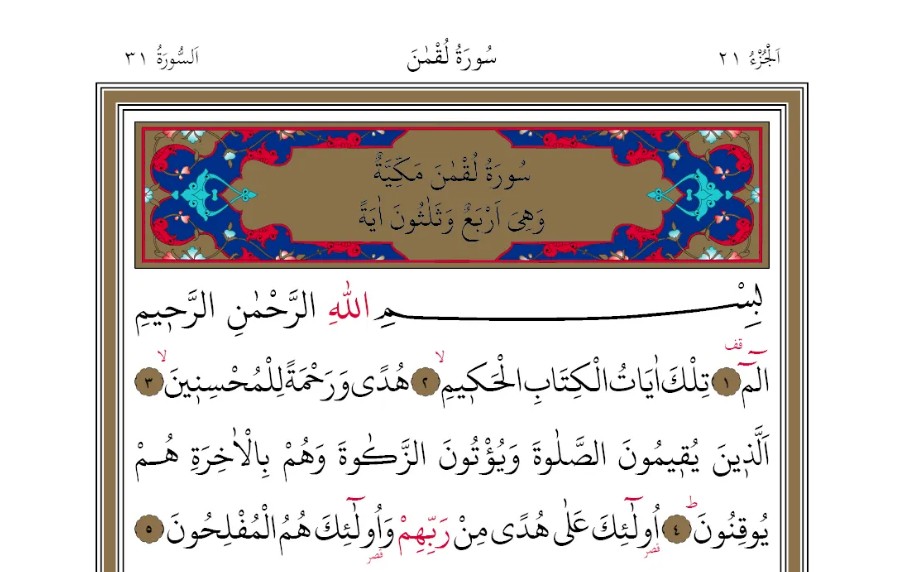 اَلْجُزْءُ ٢١ سُورَةُ لُقْمٰنَ اَلسُّورَةُ ٣١
سُورَةُ لُقْمٰنَ مَكِّيَّةٌ
وَهِىَ اَرْبَعٌ وَثَلٰثُونَ اٰيَةً
بِسْمِ اللّٰهِ الرَّحْمٰنِ الرَّحٖيمِ
الٓمٓ قف ﴿١﴾ تِلْكَ اٰيَاتُ الْكِتَابِ الْحَكٖيمِۙ ﴿٢﴾ هُدًى وَرَحْمَةً لِلْمُحْسِنٖينَۙ ﴿٣﴾
اَلَّذٖينَ يُقٖيمُونَ الصَّلٰوةَ وَيُؤْتُونَ الزَّكٰوةَ وَهُمْ بِالْاٰخِرَةِ هُمْ
يُوقِنُونَؕ ﴿٤﴾ اُو۬لٰٓئِكَ قصر عَلٰى هُدًى مِنْ رَبِّهِمْ وَاُو۬لٰٓئِكَ قصر هُمُ الْمُفْلِحُونَ ﴿٥﴾